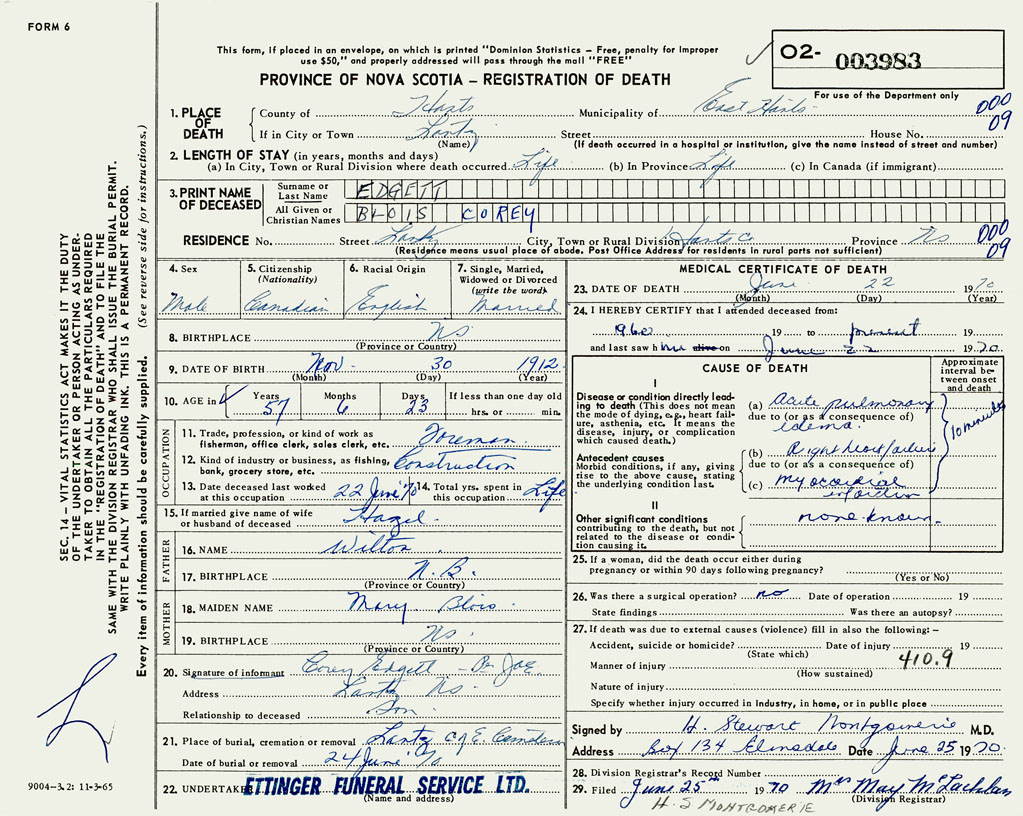 FORM 6
This form, if placed in an envelope, on which is printed "Dominion Statistics – Free, penalty for improper
use $50," and properly addressed will pass through the mail "FREE"
PROVINCE OF NOVA SCOTIA – REGISTRATION OF DEATH
O2- 003983
For use of the Department only
1. PLACE OF DEATH
County of Hants Municipality of East Hants 000 09
If in City or Town Lantz Street House No.
(Name) (If death occurred in a hospital or institution, give the name instead of street and number)
2. LENGTH OF STAY (in years, months and days)
(a) In City, Town or Rural Division where death occurred Life (b) In Province Life (c) In Canada (if immigrant)
3. PRINT NAME OF DECEASED
Surname or Last Name EDGETT
All Given or Christian Names BLOIS COREY
RESIDENCE No. Street Lantz City, Town or Rural Division Hants Co. Province NS 000 09
(Residence means usual place of abode. Post Office Address for residents in rural parts not sufficient)
4. Sex
Male
5. Citizenship
(Nationality)
Canadian
6. Racial Origin
English
7. Single, Married,
Widowed or Divorced
(write the word)
Married
8. BIRTHPLACE NS
(Province or Country)
9. DATE OF BIRTH Nov 30 1912
(Month) (Day) (Year)
10. AGE in
Years Months Days If less than one day old
57 6 23 hrs. or min.
OCCUPATION
11. Trade, profession, or kind of work as
fisherman, office clerk, sales clerk, etc. Foreman
12. Kind of industry or business, as fishing,
bank, grocery store, etc. Construction
13. Date deceased last worked
at this occupation 22 June '70
14. Total yrs. spent in
this occupation Life
15. If married give name of wife
or husband of deceased Hazel
FATHER
16. NAME Wilton
17. BIRTHPLACE N.B.
(Province or Country)
MOTHER
18. MAIDEN NAME Mary Blois
19. BIRTHPLACE NS
(Province or Country)
20. Signature of informant Corey Edgett
Address Lantz NS
Relationship to deceased Son
21. Place of burial, cremation or removal Lantz C of E
Date of burial or removal 24 June 70
22. UNDERTAKER ETTINGER FUNERAL SERVICE LTD.
(Name and address)
MEDICAL CERTIFICATE OF DEATH
23. DATE OF DEATH June 22 1970
(Month) (Day) (Year)
24. I HEREBY CERTIFY that I attended deceased from:
1960 19 to present 19
and last saw him alive on June 22 1970
CAUSE OF DEATH
Approximate
interval be-
tween onset
and death
I
Disease or condition directly lead-
ing to death (This does not mean
the mode of dying, e.g., heart fail-
ure, asthenia, etc. It means the
disease, injury, or complication
which caused death.)
(a) Acute pulmonary
due to (or as a consequence of)
edema.
10 minutes
Antecedent causes
Morbid conditions, if any, giving
rise to the above cause, stating
the underlying condition last.
(b) Right heart failure
due to (or as a consequence of)
(c) myocardial
II
Other significant conditions
contributing to the death, but not
related to the disease or condi-
tion causing it.
none known.
25. If a woman, did the death occur either during
pregnancy or within 90 days following pregnancy?
(Yes or No)
26. Was there a surgical operation? no Date of operation 19
State findings Was there an autopsy?
27. If death was due to external causes (violence) fill in also the following: –
Accident, suicide or homicide? Date of injury 19
(State which) 410.9
Manner of injury
(How sustained)
Nature of injury
Specify whether injury occurred in industry, in home, or in public place
Signed by H. Stewart Montgomerie M.D.
Address Box 134 Elmsdale Date June 25 1970
28. Division Registrar's Record Number
29. Filed June 25th 1970 Mrs May McLachlan
(Division Registrar)
H. S MONTGOMERIE
SEC. 14 – VITAL STATISTICS ACT MAKES IT THE DUTY
OF THE UNDERTAKER OR PERSON ACTING AS UNDER-
TAKER TO OBTAIN ALL THE PARTICULARS REQUIRED
IN THE "REGISTRATION OF DEATH" AND TO FILE THE
SAME WITH THE DIVISION REGISTRAR WHO SHALL ISSUE THE BURIAL PERMIT.
WRITE PLAINLY WITH UNFADING INK. THIS IS A PERMANENT RECORD.
Every item of information should be carefully supplied. (See reverse side for instructions.)
9004–3.2: 11-3-65